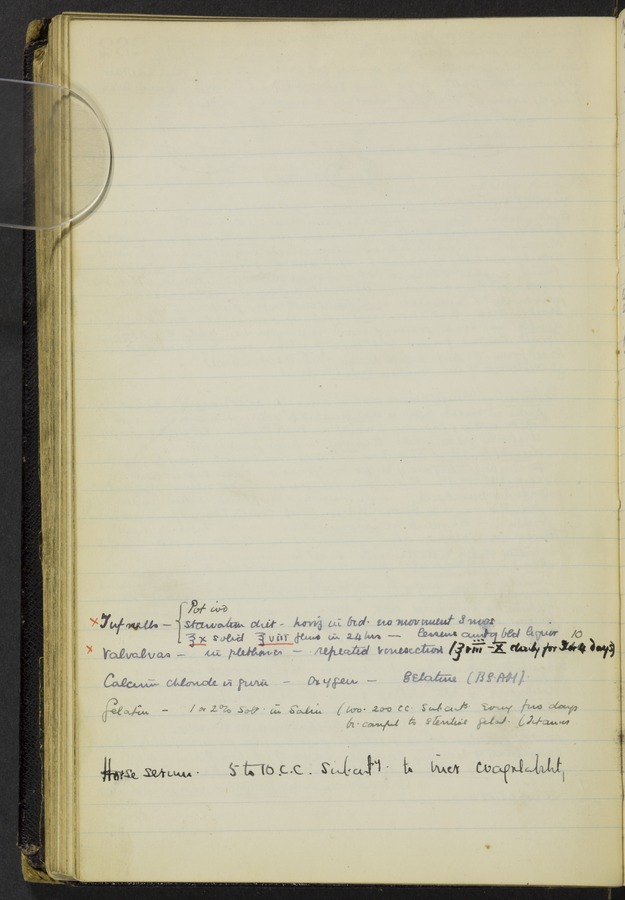 Pot iod
x Tufnells — { Starvation diet - horiz in bed. no movement 3 mos
℥x solid ℥viii fluid in 24 hrs — lessens amt of bld liquor 10
x Valsalvas — in plethoric — repeated venesection (℥viii - X daily for 3 or 4 days)
Calcium chloride - Oxygen — Gelatine
Gelatin — 1 or 2% sol. in Salin (100-200 cc subcut. Every few days
be careful to sterilise gelat. (Tetanus
Horse serum. 5 to 10 c.c. Subcut. to incr coagulability